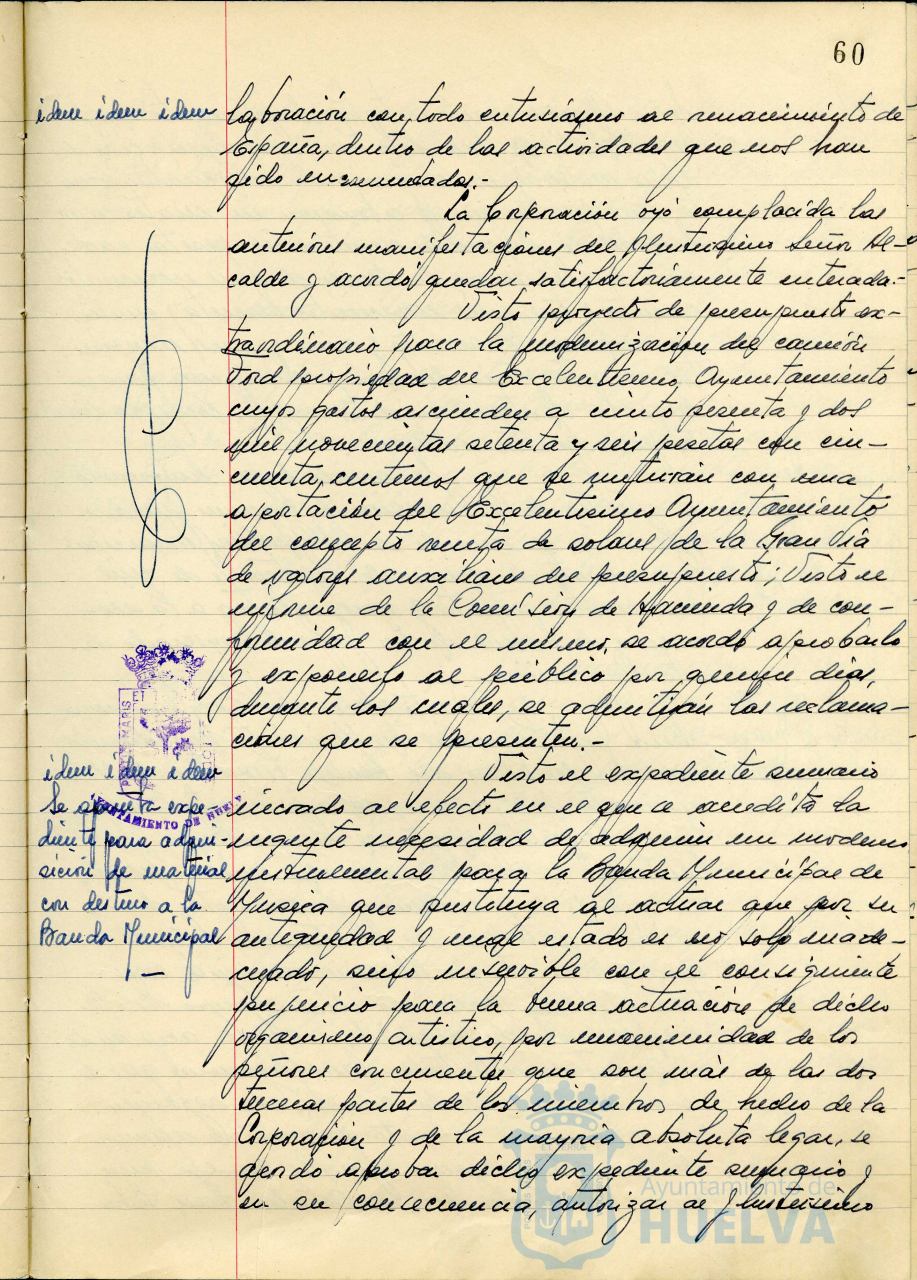 60
idem idem idem
laboración con todo entusiasmo al renacimiento de
España, dentro de las actividades que nos han
sido encomendadas.-
La Corporación oyó complacida las
anteriores manifestaciones del Ilustrisimo Señor Al-
calde y acordó quedar satisfactoriamente enterada.-
Visto proyecto de presupuesto ex-
traordinario para la modernización del camión
Ford propiedad del Excelentisimo Ayuntamiento
cuyos gastos ascienden a ciento sesenta y dos
mil novecientas setenta y seis pesetas con cin-
cuenta centimos que se nutirán con una
aportación del Excelentisimo Ayuntamiento
del concepto venta de solares de la Gran Via
de valores auxiliares del presupuesto; Visto el
informe de la Comisión de Hacienda y de con-
formidad con el mismo, se acordó aprobarlo
y exponerlo al público por quince dias,
durante los cuales, se admitirán las reclama-
ciones que se presenten.-
idem idem idem
Se aprueba expe-
diente para adqui-
sición de material
con destino a la
Banda Municipal
Visto el expediente sumario
incoado al efecto en el que se acredita la
urgente necesidad de adquirir un moderno
instrumental para la Banda Municipal de
Musica que sustituya al actual que por su
antiguedad y mal estado es no solo inade-
cuado, sino inservible con el consiguiente
perjuicio para la buena actuación de dicho
organismo artistico, por unanimidad de los
señores concurrentes que son más de las dos
terceras partes de los miembros de hecho de la
Corporación y de la mayoria absoluta legal, se
acordó aprobar dicho expediente sumario y
en su consecuencia, autorizar al Ilustrisimo
AYUNTAMIENTO DE HUELVA
Ayuntamiento de
HUELVA